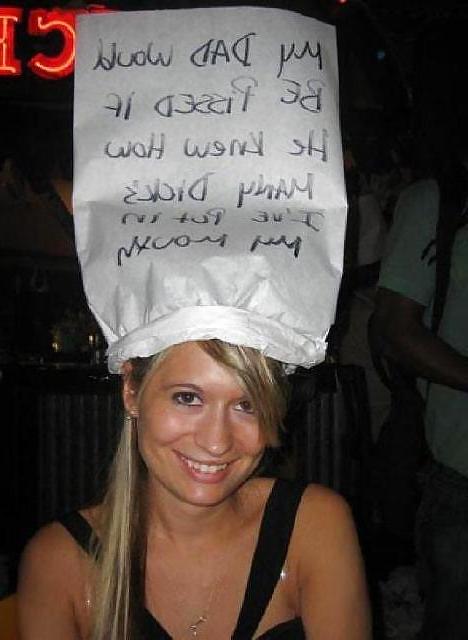 My DAD would
BE PISSED IF
He Knew How
MANy DICKS
I'VE PUT IN
My MOUTH